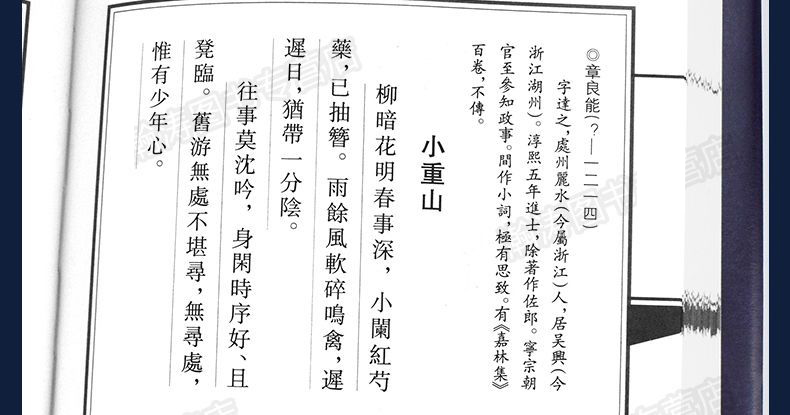 ◎章良能(?—一二一四)
字達之，處州麗水(今屬浙江)人，居吴興(今
浙江湖州)。淳熙五年進士，除著作佐郎。寧宗朝
官至參知政事。間作小詞，極有思致。有《嘉林集》
百卷，不傳。
小重山
柳暗花明春事深，小闌紅芍
藥，已抽簪。雨餘風軟碎鳴禽，遲
遲日，猶帶一分陰。
往事莫沈吟，身閑時序好、且
登臨。舊游無處不堪尋，無尋處，
惟有少年心。